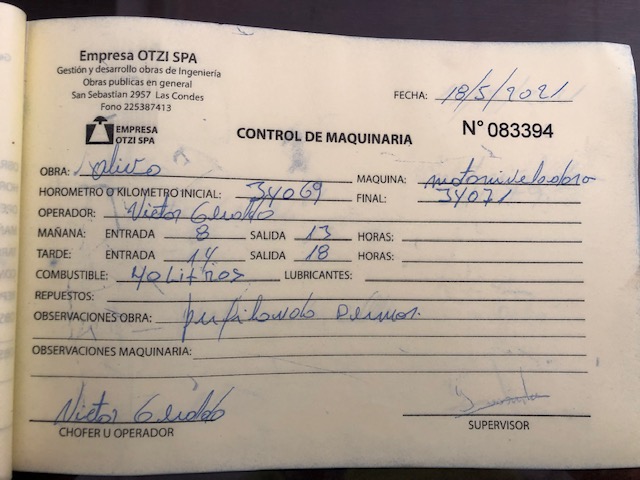 Empresa OTZI SPA
Gestión y desarrollo obras de Ingeniería
Obras publicas en general
San Sebastian 2957 Las Condes
Fono 225387413
FECHA: 18/5/2021
EMPRESA
OTZI SPA
CONTROL DE MAQUINARIA
N° 083394
OBRA: MAQUINA:
HOROMETRO O KILOMETRO INICIAL: 34069 FINAL: 34071
OPERADOR: Victor
MAÑANA: ENTRADA 8 SALIDA 13 HORAS:
TARDE: ENTRADA 14 SALIDA 18 HORAS:
COMBUSTIBLE: 40 Litros LUBRICANTES:
REPUESTOS:
OBSERVACIONES OBRA: perfilando
OBSERVACIONES MAQUINARIA:
Victor
CHOFER U OPERADOR SUPERVISOR